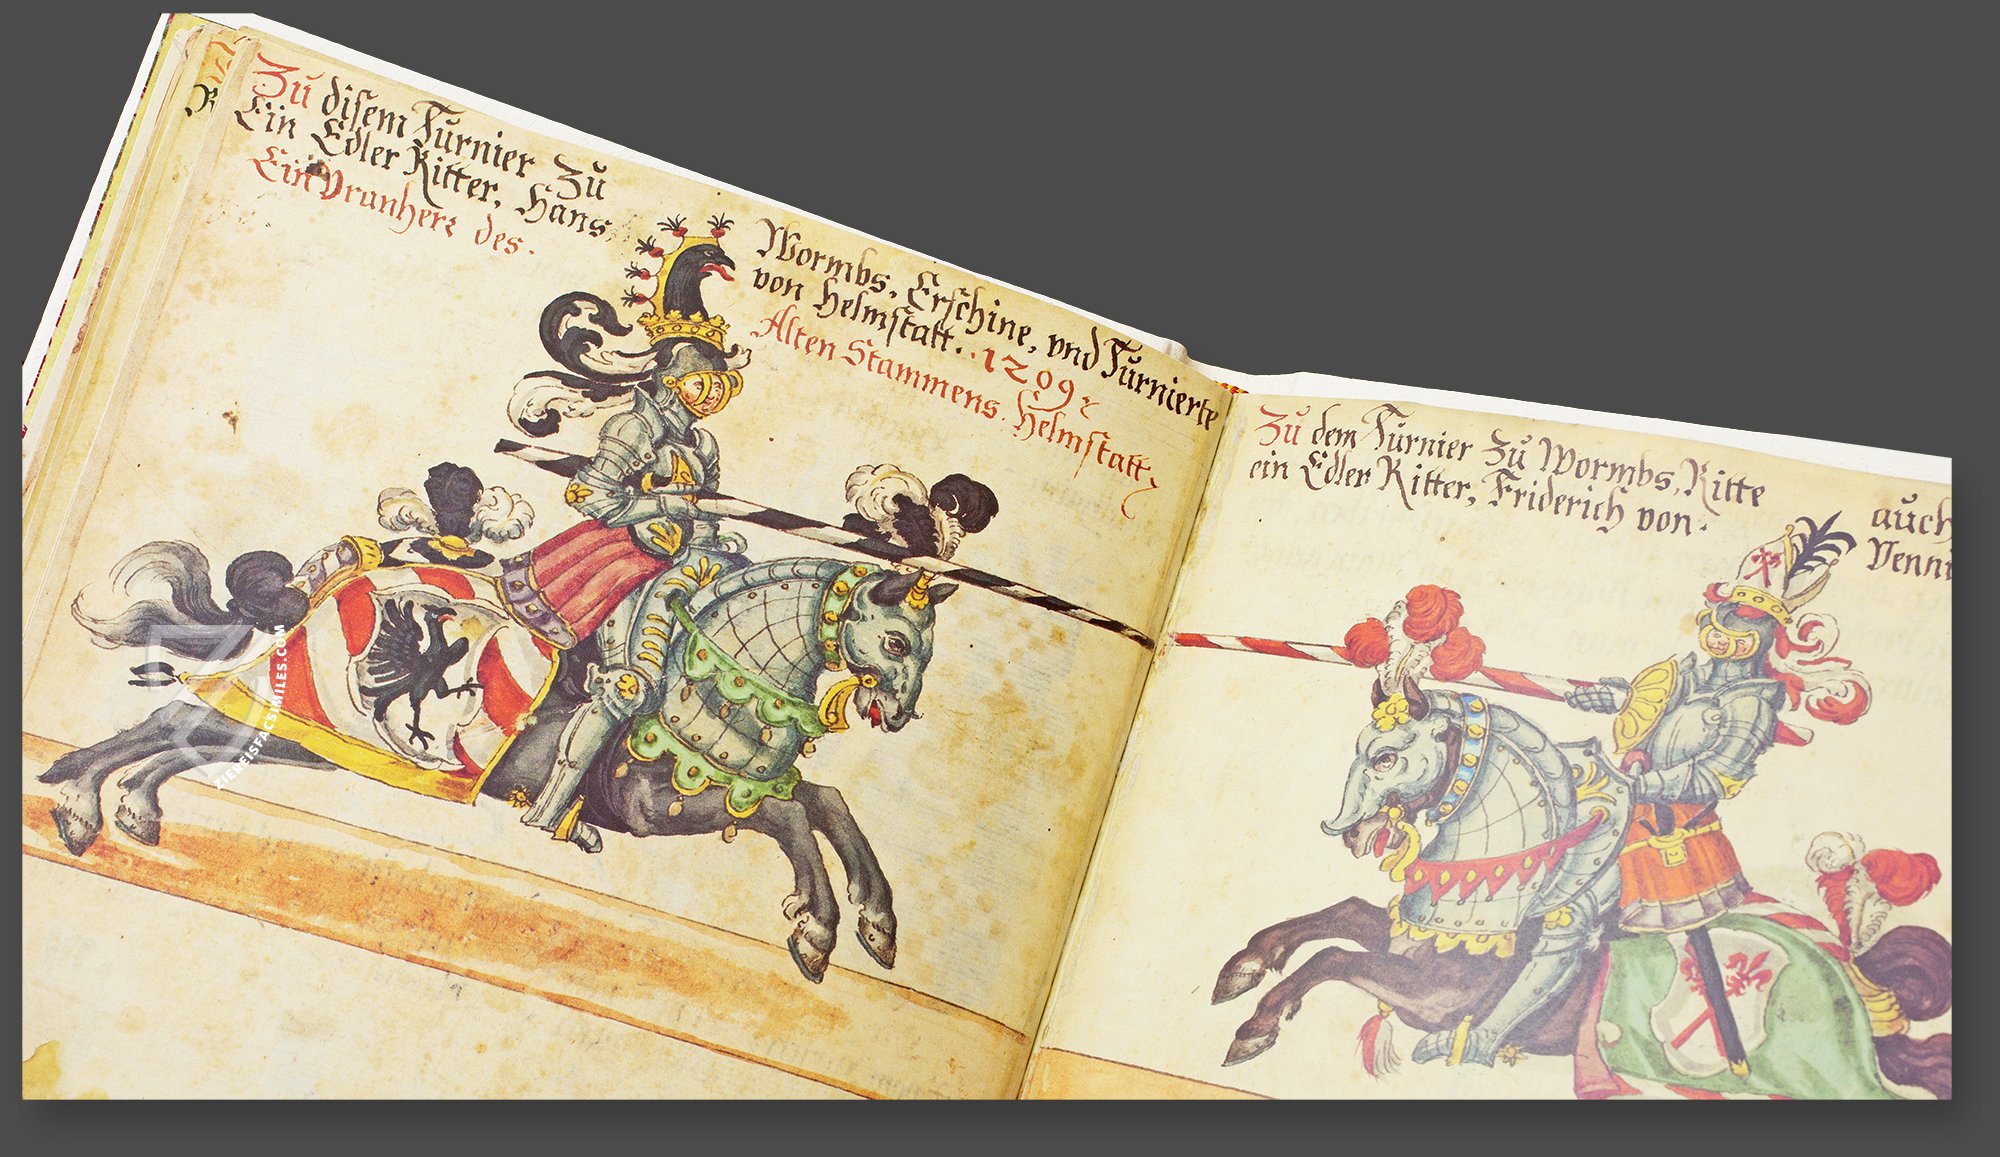 Zü disem Türnier Zü Wormbs, Erschine, vnd Türnierte
Ein Edler Ritter, Hans von Helmstatt. .1209.
Ein Vranherz des. Alten Stammens. Helmstatt,
Zü dem Türnier Zü Wormbs, Ritte aüch
ein Edler Ritter, Friderich von. Venni
ZIEREISFACSIMILES.COM